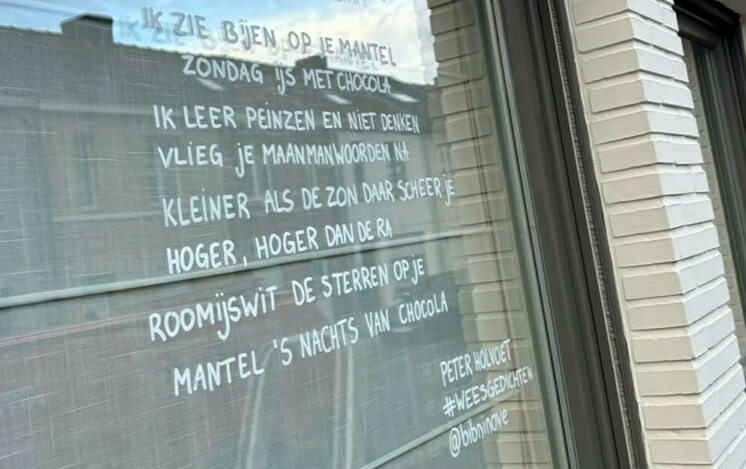 IK ZIE BIJEN OP JE MANTEL
ZONDAG IJS MET CHOCOLA
IK LEER PEINZEN EN NIET DENKEN
VLIEG JE MAANMANWOORDEN NA
KLEINER ALS DE ZON DAAR SCHEER JE
HOGER, HOGER DAN DE RA
ROOMIJSWIT DE STERREN OP JE
MANTEL 'S NACHTS VAN CHOCOLA
PETER HOLVOET
#WEESGEDICHTEN
@bibninove